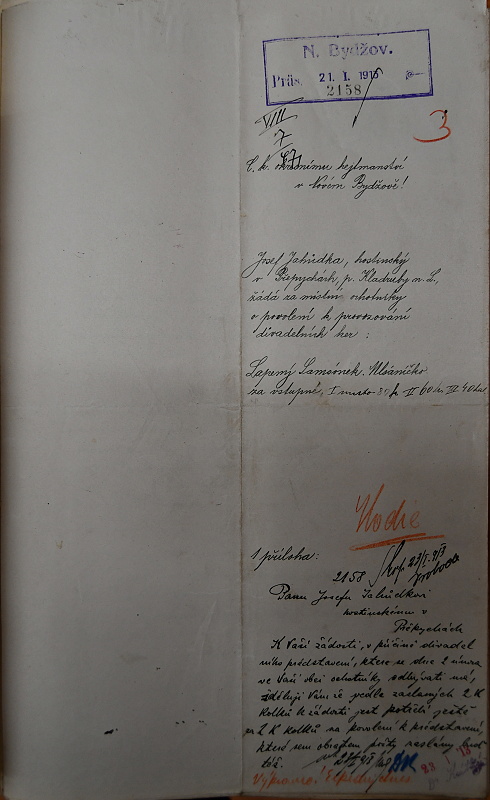 N. Bydžov.
Präs. 21. I. 1913
2158
VIII
7
3
C. k. okresnímu hejtmanství
v Novém Bydžově!
Josef Jahůdka, hostinský
v Přepychách, p. Kladruby n. L.,
žádá za místní ochotníky
o povolení k provozování
divadelních her :
Lapený Samsónek. Mlsáníčko
za vstupné, I místo 80 h II 60 h. III 40 hal
Hodie
1 příloha:
2158
Panu Josefu Jahůdkovi
hostinskému v
Přepychách
K Vaší žádosti, v příčině divadel
ního představení, které se dne 2 února
ve Vaší obci ochotníky odbývati má,
sděluji Vám že vedle zaslaných 2 K
kolků k žádosti jest potřebí ještě
1 K kolků na povolení k představení,
které sem obratem pošty zaslány buď
těž.